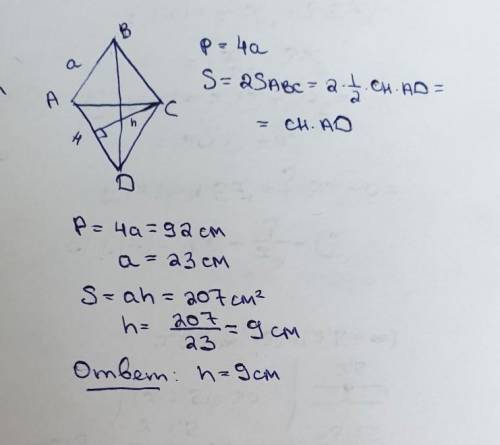 B
a
A
C
H
h
D
P = 4a
S = 2SABC = 2 · 1/2 · CH · AD =
= CH · AD
P = 4a = 92 см
a = 23 см
S = ah = 207 см²
h = 207/23 = 9 см
Ответ: h = 9 см